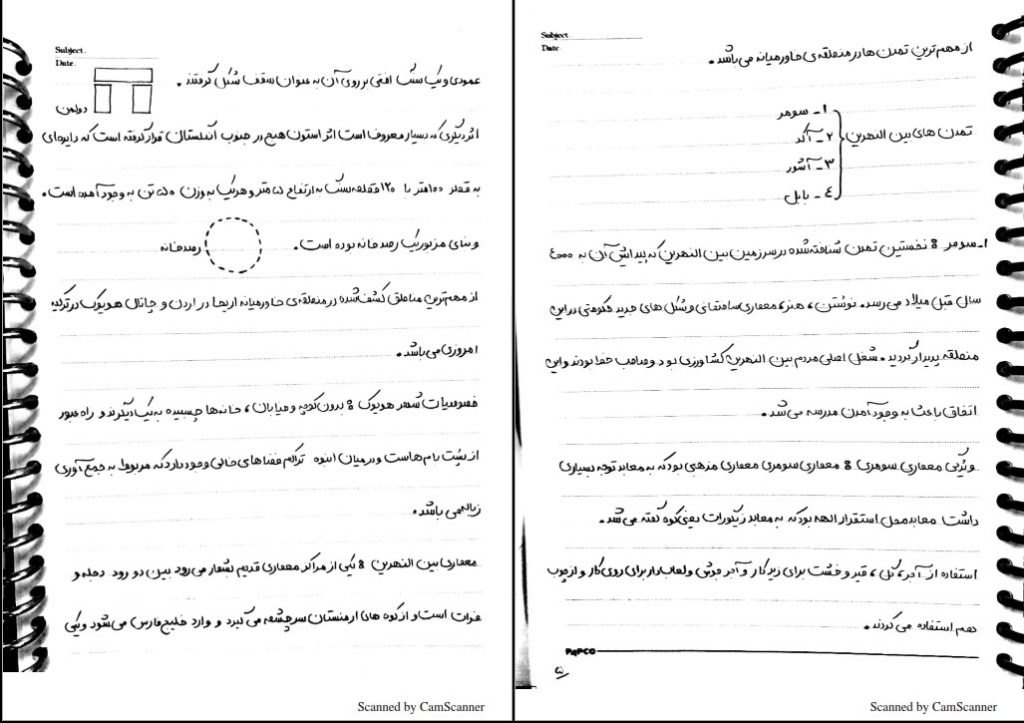 Subject.
Date.
عمودی و یک سنگ افقی بر روی آن به عنوان سقف شکل گرفتند.
دولمن
اثر دیگری که بسیار معروف است اثر استون هیج در جنوب انگلستان قرار گرفته است که دایره‌ای
به قطر ۱۰۰ متر با ۱۲۰ قطعه سنگ به ارتفاع ۵ متر و هر یک به وزن ۵۰ تن به وجود آمده است.
و بنای مزبور یک رصد خانه بوده است. رصد خانه
از مهم‌ترین مناطق کشف شده در منطقه‌ی خاورمیانه اریحا در اردن و چاتال هویوک در ترکیه
امروزی می باشد.
خصوصیات شهر هویوک : بدون کوچه و خیابان، خانه‌ها چسبیده به یکدیگرند و راه عبور
از پشت بام هاست و در میان انبوه تراکم فضاهای خالی وجود دارد که مربوط به جمع آوری
زباله می باشد.
معماری بین النهرین : یکی از مراکز معماری قدیم بشمار می‌رود بین دو رود دجله و
فرات است و از کوه های ارمنستان سرچشمه می گیرد و وارد خلیج فارس می شود و یکی
Scanned by CamScanner
Subject.
Date.
از مهم ترین تمدن ها در منطقه‌ی خاورمیانه می باشد.
تمدن های بین النهرین
۱ـ سومر
۲ـ آکد
۳ـ آشور
٤ـ بابل
۱ـ سومر : نخستین تمدن شناخته شده در سرزمین بین النهرین که پیدایش آن به ٤۰۰۰
سال قبل میلاد می رسد. نوشتن، هنر، معماری ساختمانی و شکل های جدید حکومتی در این
منطقه پدیدار گردید. شغل اصلی مردم بین النهرین کشاورزی بود و صاحب خط بودند و این
اتفاق باعث به وجود آمدن مدرسه می شد.
ویژگی معماری سومری : معماری سومری معماری مذهبی بود که به معابد توجه بسیاری
داشت. معابد محل استقرار الهه بود که به معابد زیگورات یعنی کوه گفته می شد.
استفاده از آجر، گل، قیر و خشت برای زیر کار و آجر فرش و لعاب دار برای روی کار و از چوب
هم استفاده می کردند.
PaPCO
۵
Scanned by CamScanner